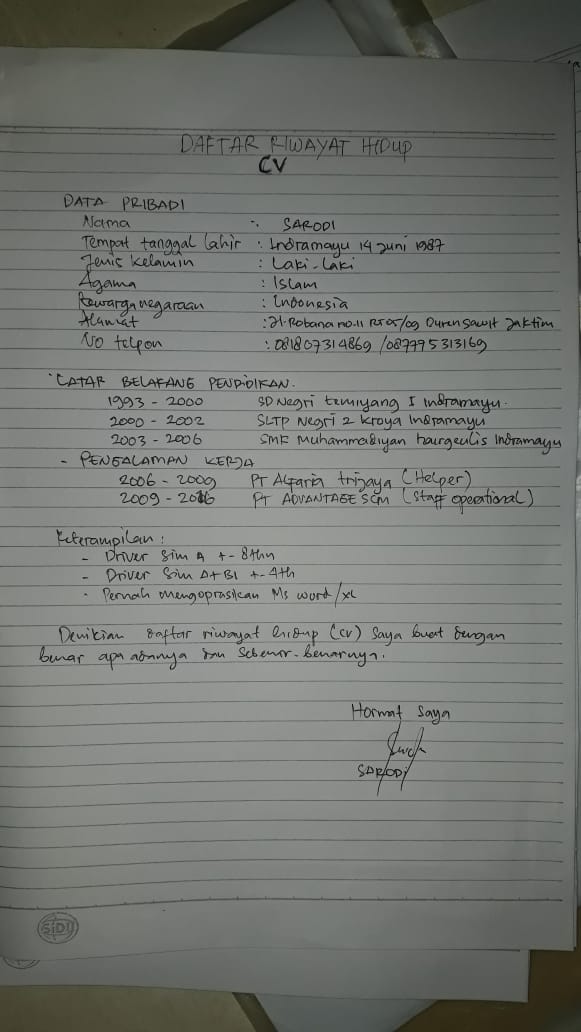 DAFTAR RIWAYAT HIDUP
CV
DATA PRIBADI
Nama : SARODI
Tempat tanggal lahir : Indramayu 14 Juni 1987
Jenis kelamin : Laki-Laki
Agama : Islam
Kewarganegaraan : Indonesia
Alamat : Jl. Robana no.11 RT 05/09 Duren Sawit Jaktim
No telpon : 081807314869 / 087775313169
LATAR BELAKANG PENDIDIKAN.
1993 - 2000 SD Negri temiyang I Indramayu.
2000 - 2002 SLTP Negri 2 kroya Indramayu
2003 - 2006 SMK Muhammadiyah haurgeulis Indramayu
- PENGALAMAN KERJA
2006 - 2009 PT Alfaria trijaya (Helper)
2009 - 2016 PT ADVANTAGE SCM (Staff operational)
Keterampilan :
- Driver Sim A +- 8thn
- Driver Sim A+B1 +- 4th
- Pernah mengoprasikan Ms word/xl
Demikian daftar riwayat hidup (cv) saya buat dengan
benar apa adanya dan sebenar-benarnya.
Hormat Saya
SARODI
SIDU